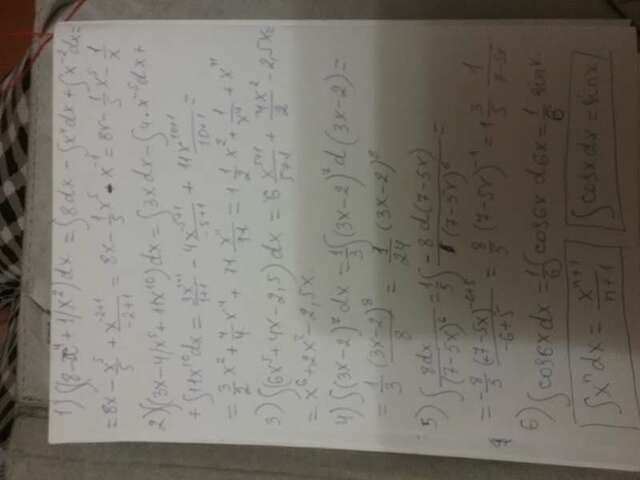 1) ∫(8-x⁴+1/x²)dx = ∫8dx - ∫x⁴dx + ∫x⁻²dx =
= 8x - x⁵/5 + x⁻²⁺¹/-2+1 = 8x - 1/5 x⁵ - x⁻¹ = 8x - 1/5 x⁵ - 1/x
2) ∫(3x-4/x⁵+11x¹⁰)dx = ∫3xdx - ∫4·x⁻⁵dx +
+ ∫11x¹⁰dx = 3x¹⁺¹/1+1 - 4x⁻⁵⁺¹/-5+1 + 11x¹⁰⁺¹/10+1 =
= 3/2 x² + 4/4 x⁻⁴ + 11 x¹¹/11 = 1 1/2 x² + 1/x⁴ + x¹¹
3) ∫(6x⁵+4x-2,5)dx = 6 x⁵⁺¹/5+1 + 4x²/2 - 2,5x =
= x⁶+2x²-2,5x.
4) ∫(3x-2)⁷dx = 1/3 ∫(3x-2)⁷d(3x-2) =
= 1/3 (3x-2)⁸/8 = 1/24 (3x-2)⁸
5) ∫ 8dx/(7-5x)⁶ = 1/5 ∫ -8d(7-5x)/(7-5x)⁶ =
= -8/5 (7-5x)⁻⁶⁺⁵/-6+5 = 8/5 (7-5x)⁻¹ = 1 3/5 1/7-5x
6) ∫cos6xdx = 1/6 ∫cos6x d6x = 1/6 sinx.
∫xⁿdx = xⁿ⁺¹/n+1 ∫cosxdx = sinx